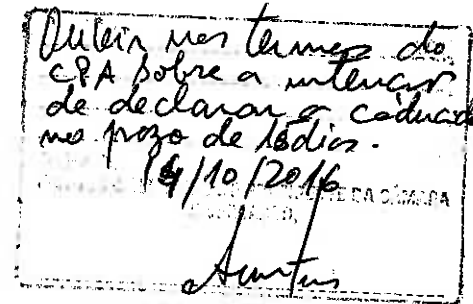 Ouvir nos termos do
CPA sobre a intenção
de declarar a caducid
no prazo de 10 dias.
14/10/2016
DA CÂMARA